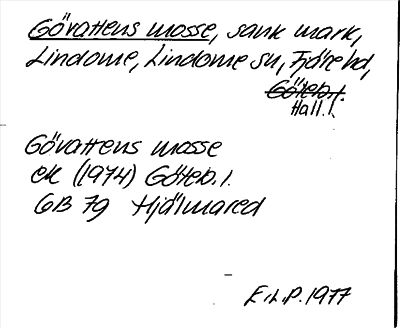 Gövattens mosse, sank mark,
Lindome, Lindome sn, Fjäre hd,
Göteb. l.
Hall. l.
Gövattens mosse
ek (1974) Göteb. l.
6B 7g Hjälmared
E.L.P. 1977